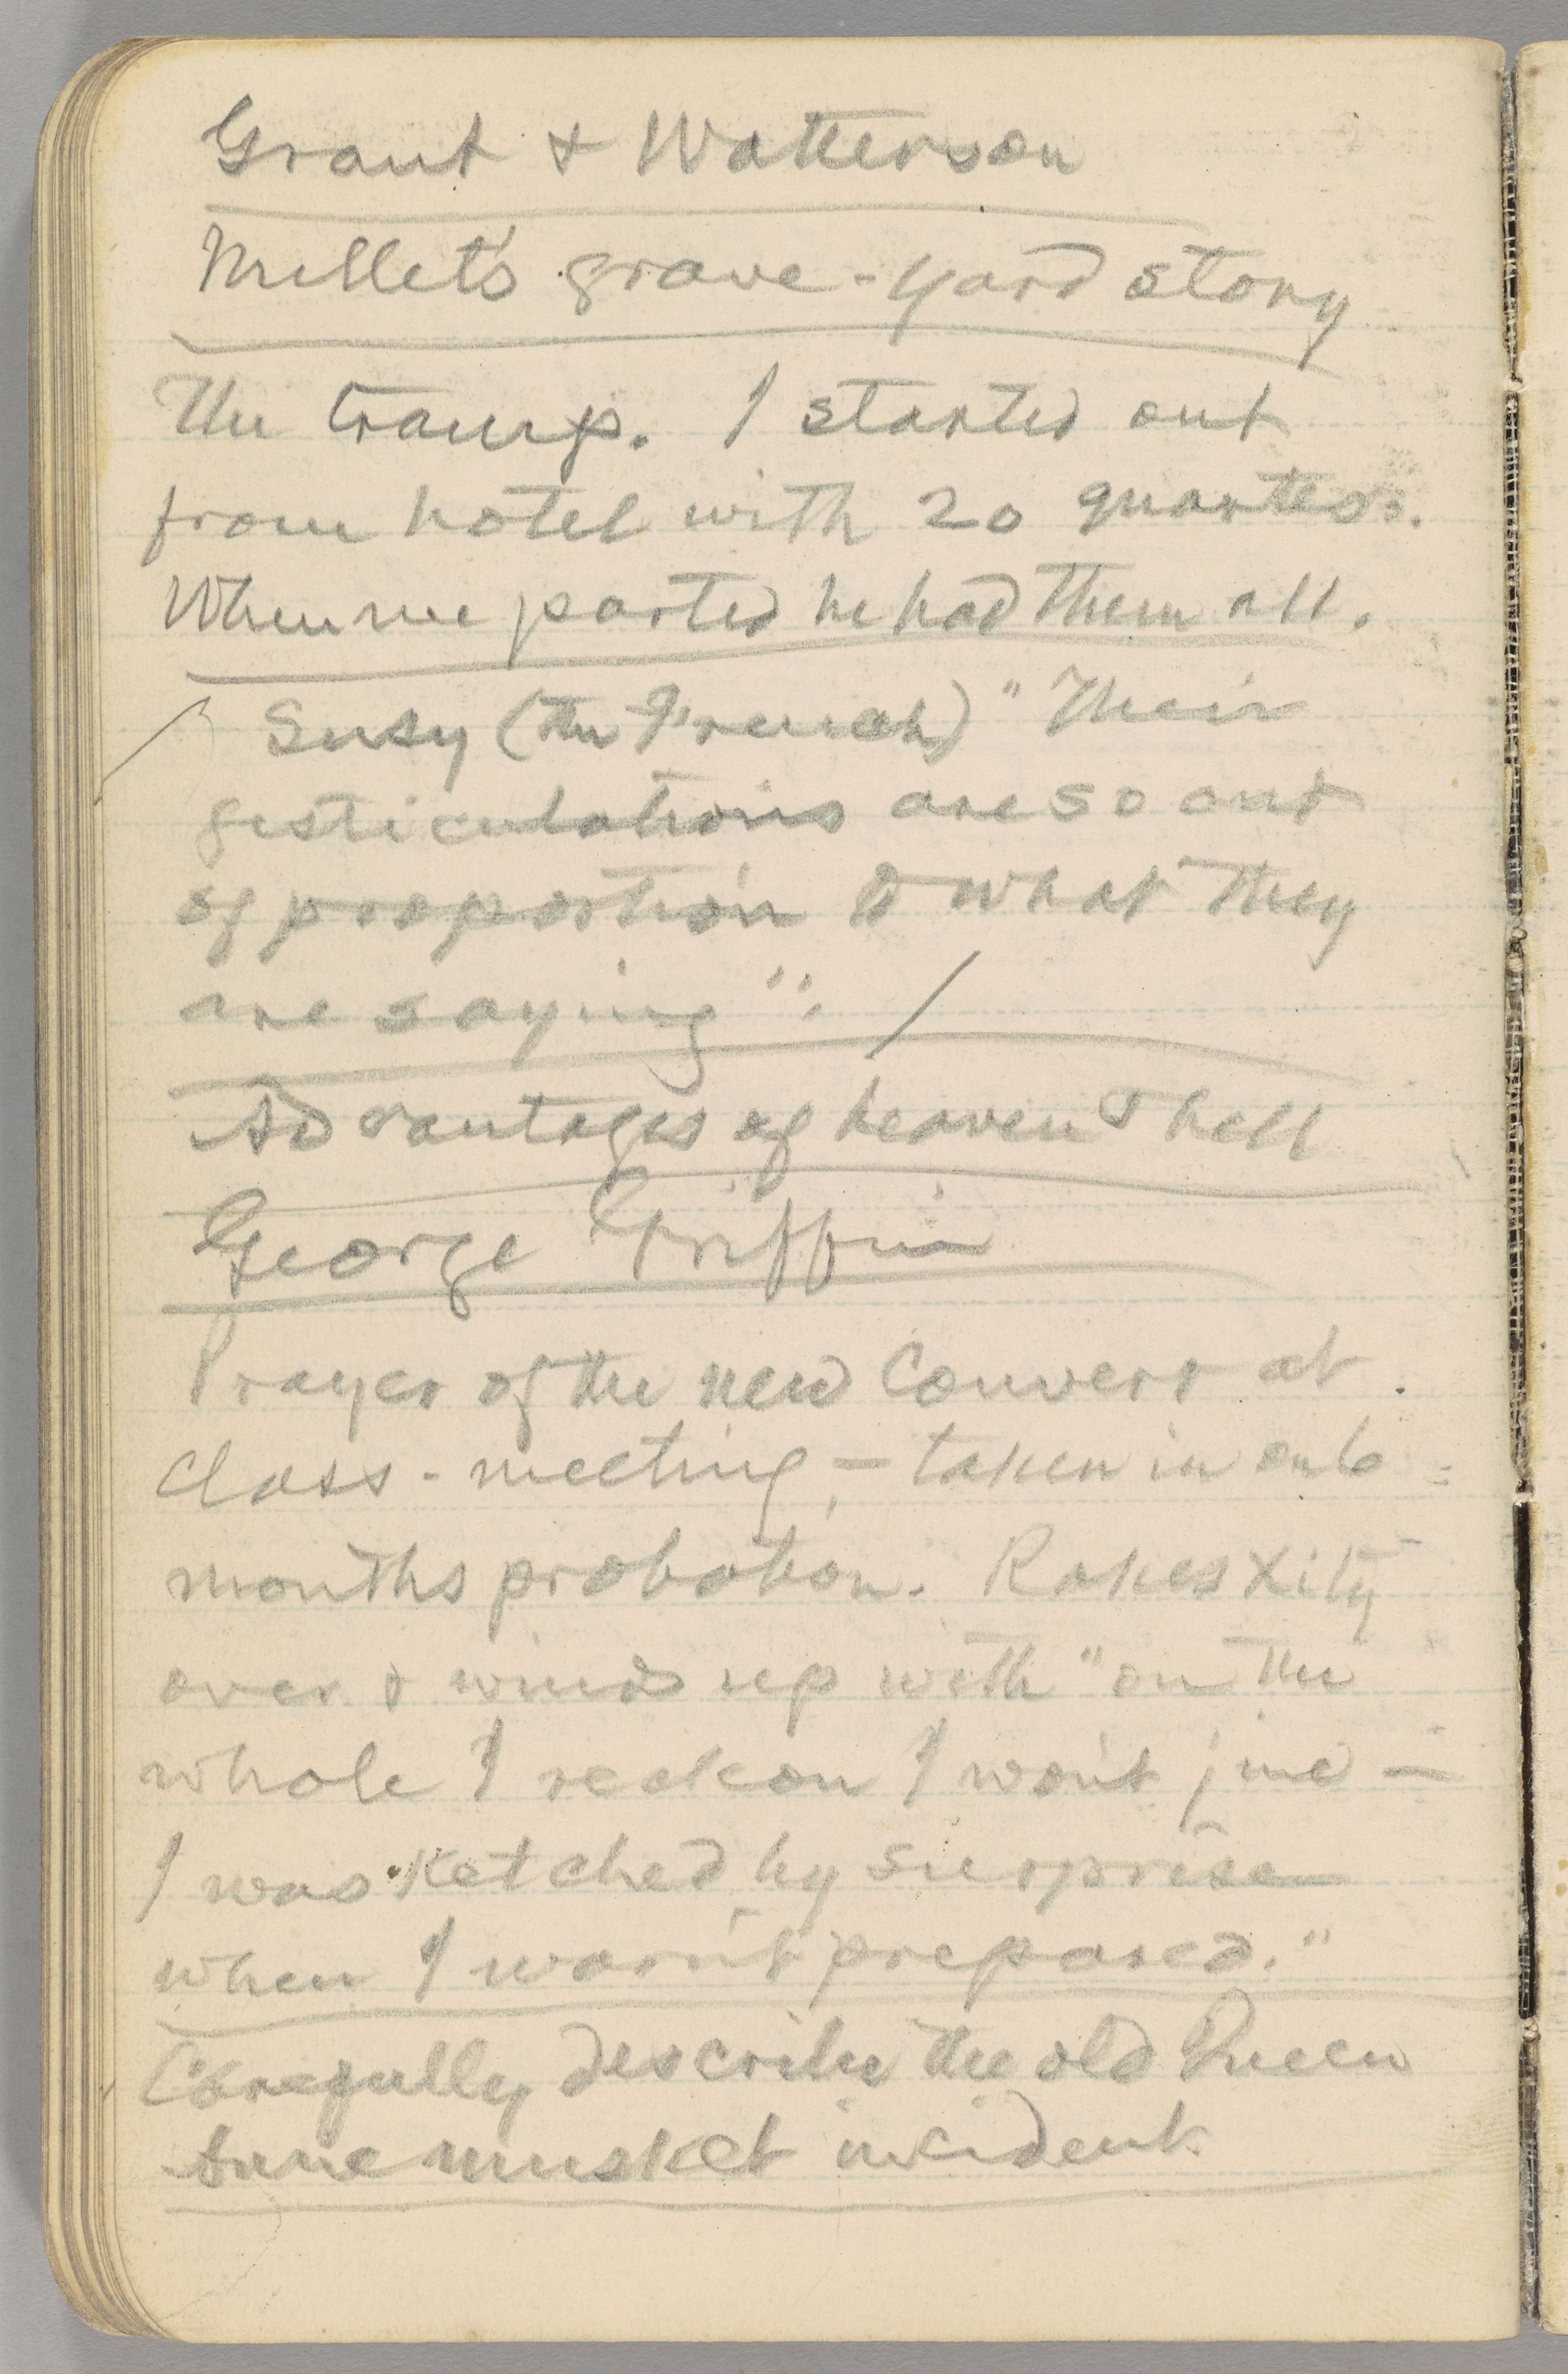 Grant & Watterson
Millet's grave-yard story
The tramp. I started out
from hotel with 20 quarters.
When we parted he had them all.
Susy (the French) "Their
gesticulations are so out
of proportion to what they
are saying".
Advantages of heaven & hell
George Griffin
Prayer of the new convert at
class-meeting, — taken in on 6
months probation. Rakes Xity
over & winds up with "on the
whole I reckon I won't jine —
I was ketched by surprise
when I warn't prepared."
Carefully describe the old Queen
Anne musket incident